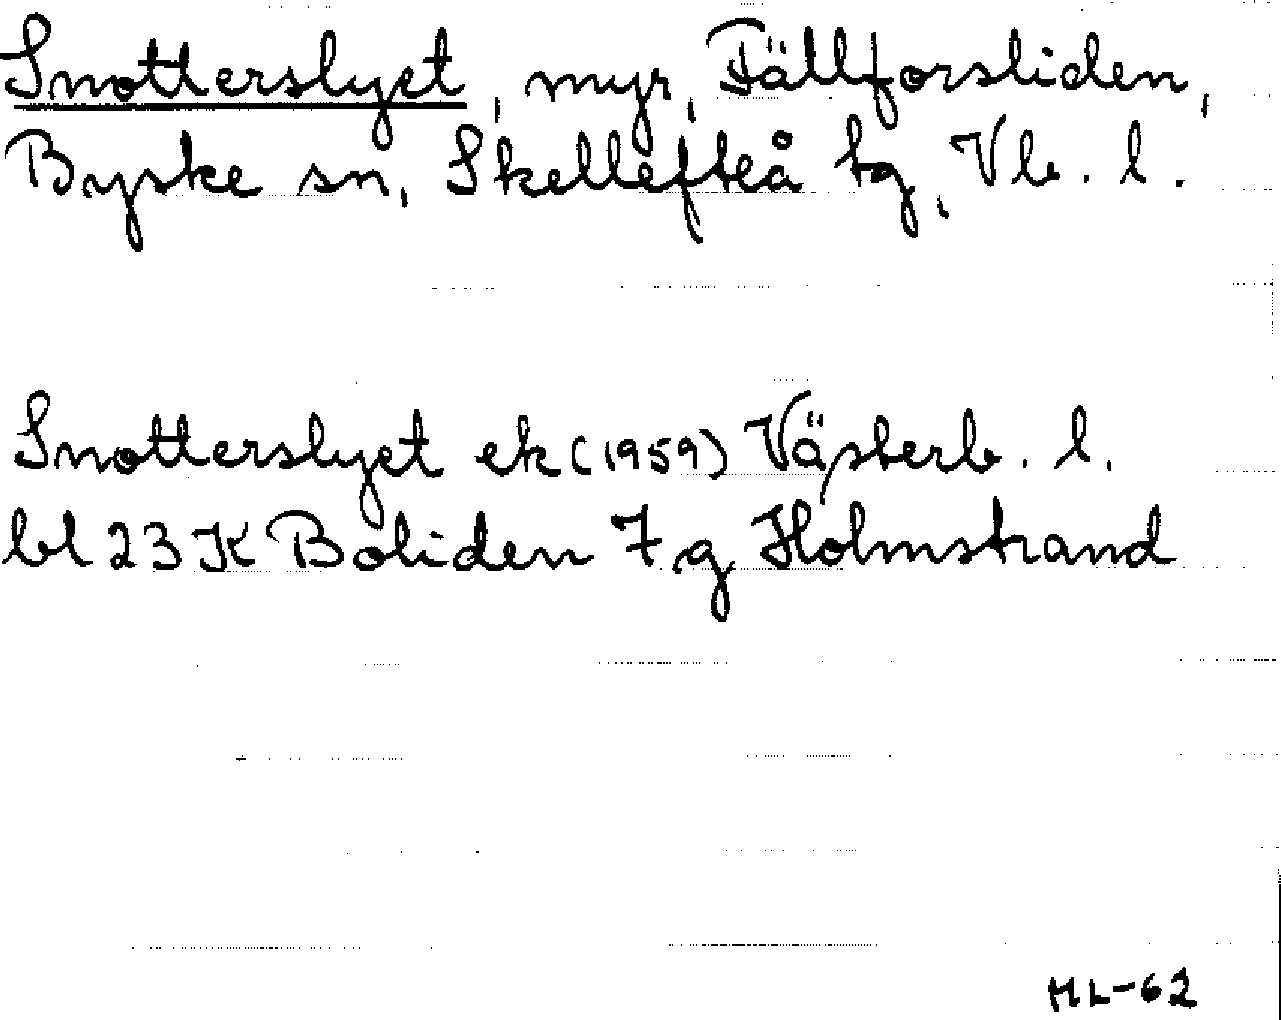 Snotterslyet, myr, Fällforsliden,
Byske sn, Skellefteå tg, Vb. l.
Snotterslyet ek (1959) Västerb. l.
bl 23 K Boliden 7 g Holmstrand
ML-62